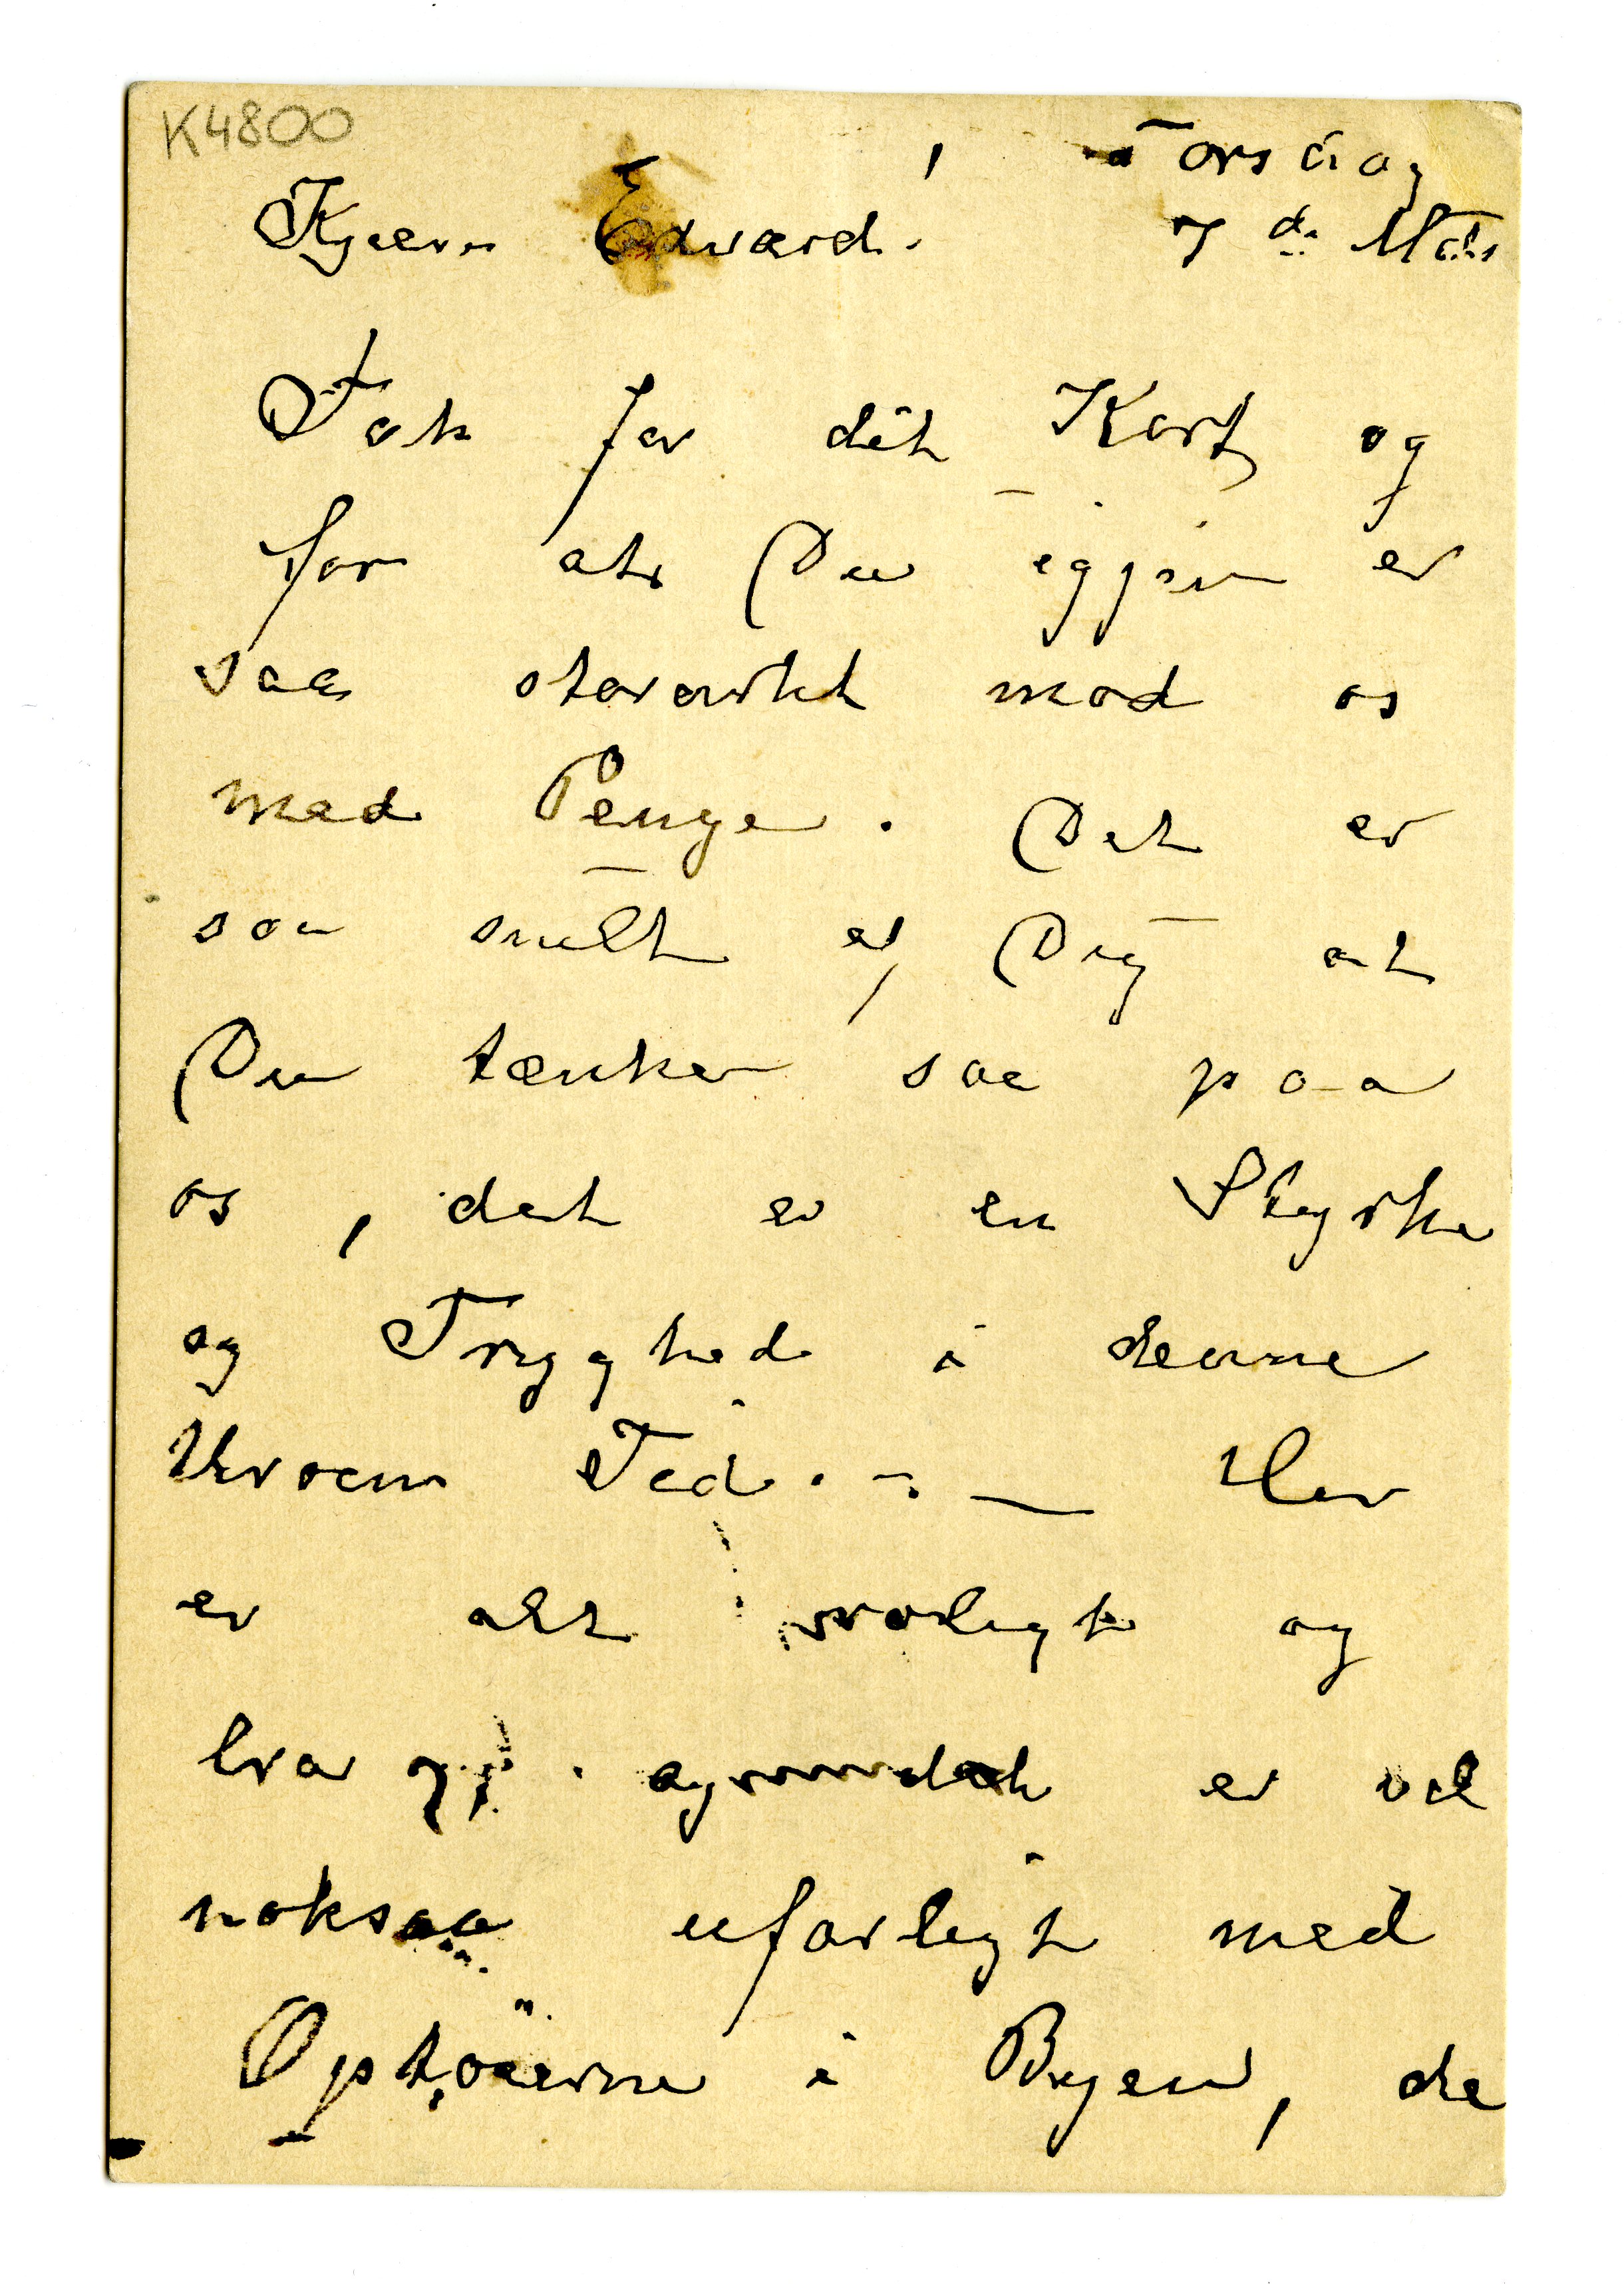 K4800
Torsdag
Kjære Edvard! 7de Mats
Tak for dit Kort og
for at Du igjen er
saa storartet mod os
med Penge. Det er
saa snilt af Dig at
Du tænker saa paa
os, det er en Styrke
og Tryghed i denne
Uroens Tid. – Her
er alt roligt og
bra og er vel
noksaa ufarligt med
Optöierne i Byen, de